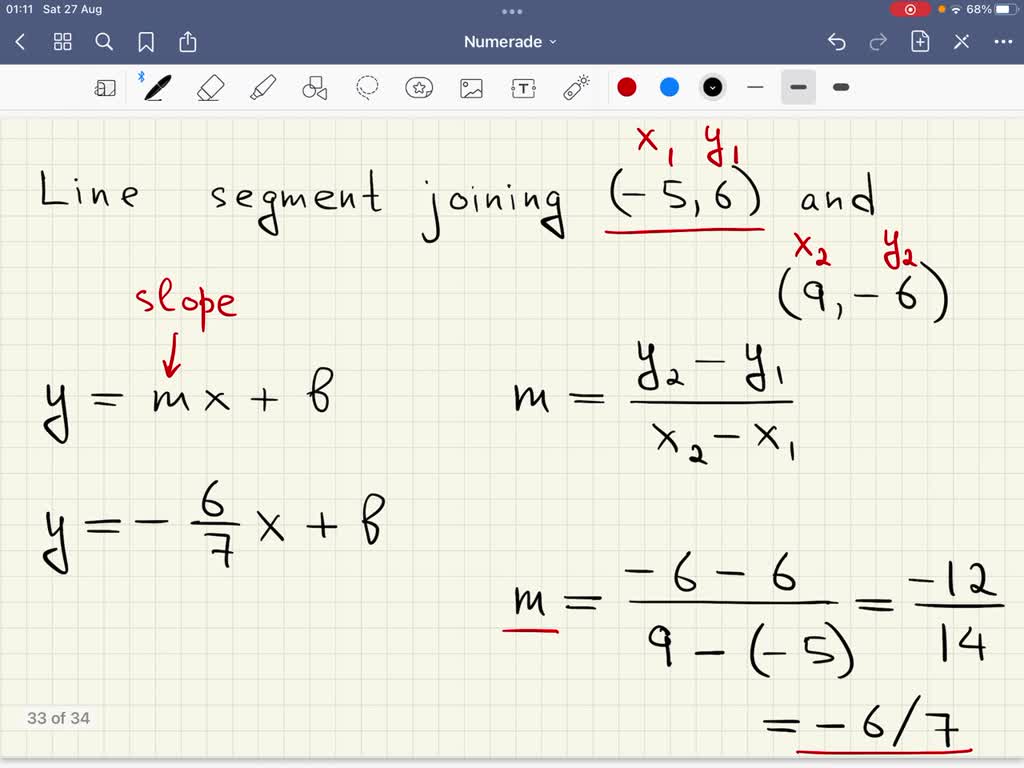 01:11 Sat 27 Aug 68%
Numerade
x₁ y₁
Line segment joining (-5, 6) and
x₂ y₂
(9, -6)
slope
y = mx + b
m = (y₂ - y₁)/(x₂ - x₁)
y = - 6/7 x + b
m = (-6 - 6)/(9 - (-5)) = -12/14
= -6/7
33 of 34